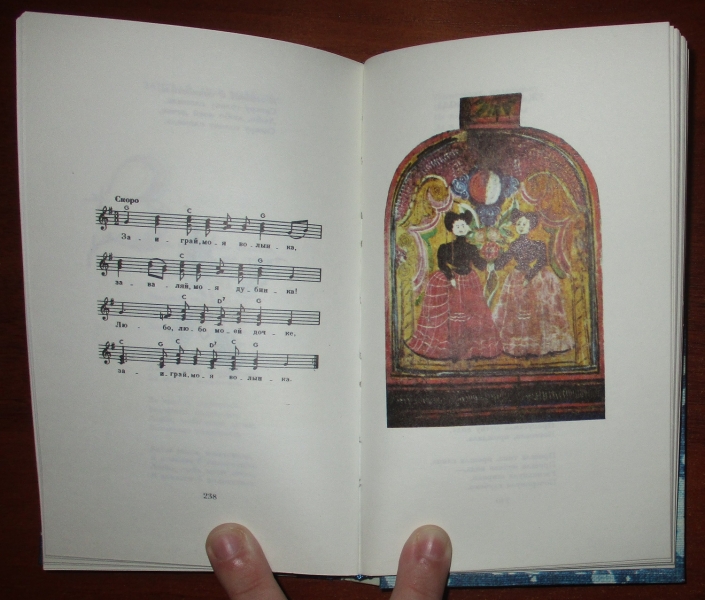 Скоро
G C G
За - и - грай, мо - я во - лын - ка,
C G
за - ва - ляй, мо - я ду - бин - ка!
C D7 G
Лю - бо, лю - бо мо - ей доч - ке,
C G C D7 C G
за - и - грай, мо - я во - лын - ка.
238